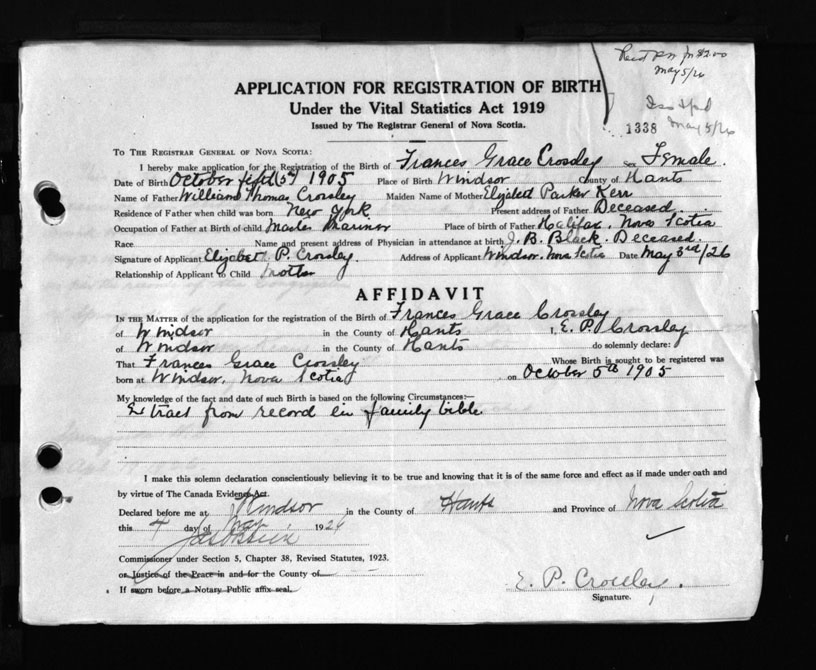 Recd P.N. for $2.00
May 5/26
APPLICATION FOR REGISTRATION OF BIRTH
Under the Vital Statistics Act 1919
Issued by The Registrar General of Nova Scotia.
1338 May 5/26
TO THE REGISTRAR GENERAL OF NOVA SCOTIA:
I hereby make application for the Registration of the Birth of Frances Grace Crossley Sex Female.
Date of Birth October 5th 1905 Place of Birth Windsor County of Hants
Name of Father William Thomas Crossley Maiden Name of Mother Elizabeth Parker Kerr
Residence of Father when child was born New York Present address of Father Deceased
Occupation of Father at Birth of child Master Marinor Place of birth of Father Halifax, Nova Scotia
Race Name and present address of Physician in attendance at birth J. B. Black. Deceased.
Signature of Applicant Elizabeth P. Crossley. Address of Applicant Windsor, Nova Scotia Date May 3rd/26
Relationship of Applicant to Child Mother
AFFIDAVIT
IN THE MATTER of the application for the registration of the Birth of Frances Grace Crossley
of Windsor in the County of Hants I, E. P. Crossley
of Windsor in the County of Hants do solemnly declare:
That Frances Grace Crossley Whose Birth is sought to be registered was
born at Windsor, Nova Scotia on October 5th 1905
My knowledge of the fact and date of such Birth is based on the following Circumstances:—
Extract from record in family bible.
I make this solemn declaration conscientiously believing it to be true and knowing that it is of the same force and effect as if made under oath and
by virtue of The Canada Evidence Act.
Declared before me at Windsor in the County of Hants and Province of Nova Scotia
this 4 day of May 1926
Commissioner under Section 5, Chapter 38, Revised Statutes, 1923.
or Justice of the Peace in and for the County of
If sworn before a Notary Public affix seal.
E. P. Crossley.
Signature.